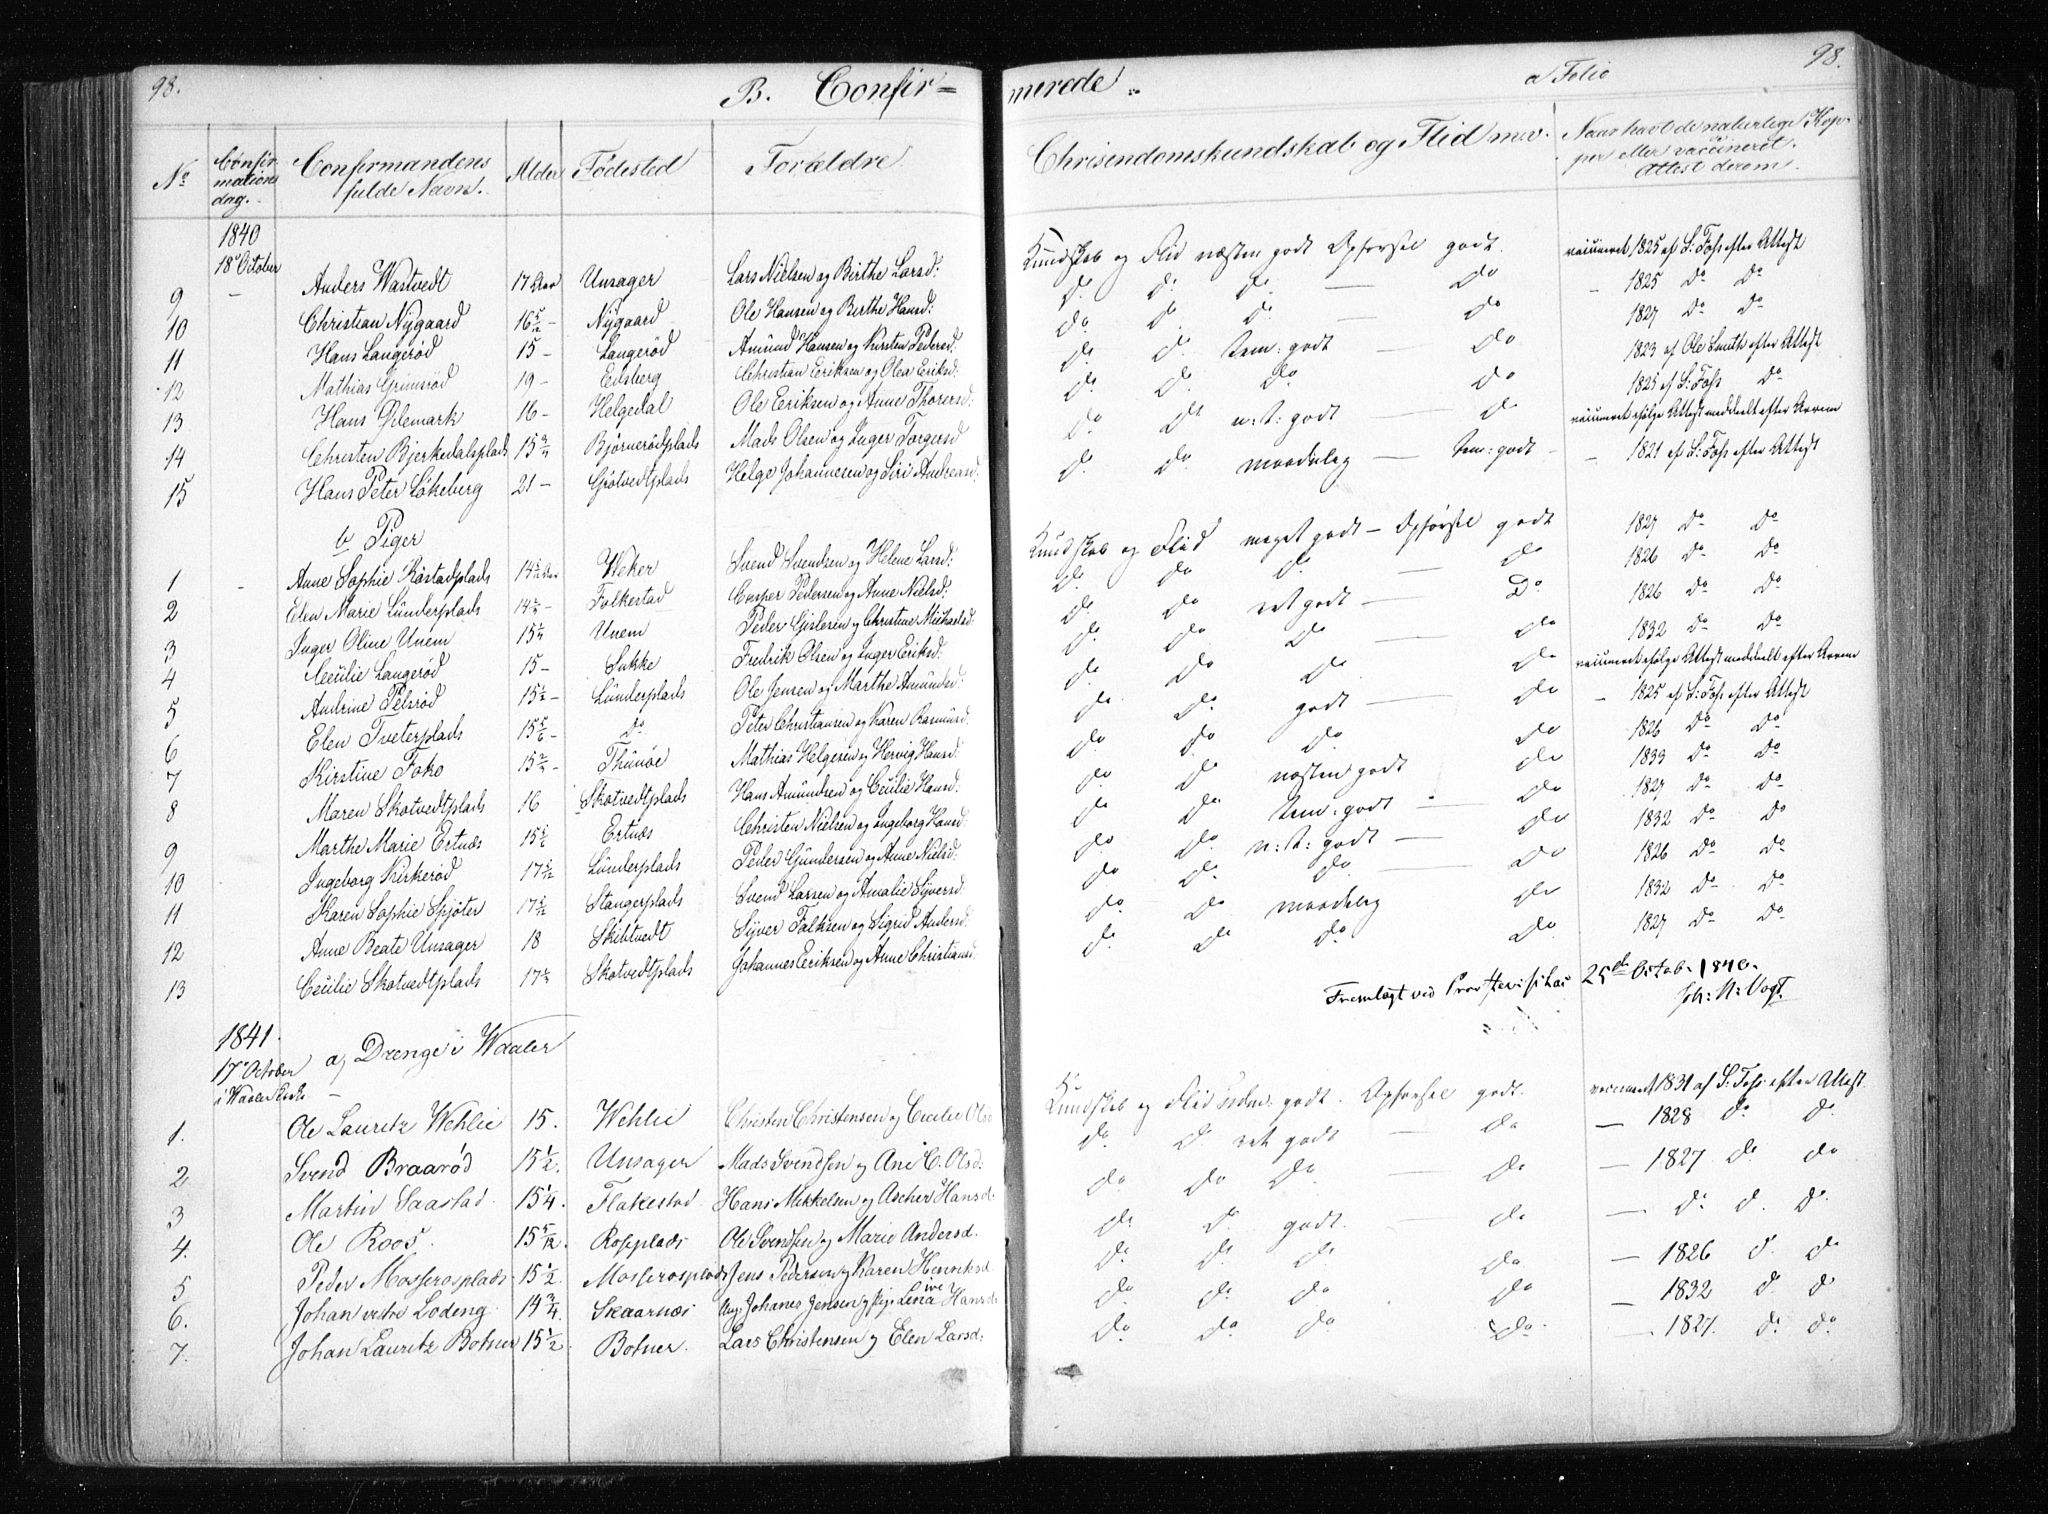 98. B. Confir= merede. a Folio 98.
No Confirmations dag. Confirmandens fulde Navn. Alder Fødested Forældre. Chrisendomskundskab og Flid m.v. Naar havt de naturlige Kopper eller vaccineret. Attest derom.
1840
18de October
9 — Anders Wastvedt 17 Aar Unsager Lars Nielsen og Birthe Larsd: Kundskab og Flid næsten godt Opførsel godt. vaccineret 1825 af S: Foss efter Attest
10 Christian Nygaard 16 5/12 — Nygaard Ole Hansen og Berthe Hansd: Do Do Do — Do — 1825 Do Do
11 Hans Langerød 15 — Langerød Amund Hansen og Kirsten Pedersd: Do Do Do — Do 1827 Do Do
12 Mathias Grimsrød 19 — Eidsberg Christian Eriksen og Olea Eriksd: Do Do tem: godt — Do 1823 af Ole Smith efter Attest
13 Hans Glemark 16 — Helgedal Ole Eriksen og Anne Thorersd: Do Do Do Do 1825 af S: Foss Do
14 Christen Bjerkedalsplads 15 3/4 Bjørnerødplads Mads Olsen og Inger Torgersd Do Do n: t: godt — Do vaccineret ifølge Attest meddeelt efter
15 Hans Peter Løkeberg 21 — Grøtvedtplads Helge Johannesen og Siri Andreasd: Do Do maadelig — tem: godt — — 1821 af S: Foss efter Attest
b Piger
1 — Anne Sophie Røstadplads 14 1/2 Aar Weker Svend Svendsen og Helene Larsd: Kundskab og Flid meget godt — Opførsel godt 1827 Do Do
2 Elen Marie Lunderplads 14 2/3 — Folkestad Casper Pedersen og Anne Nielsd: Do Do Do — Do 1826 Do Do
3 Inger Oline Unem 15 1/4 Unem Peder Gislesen og Christine Michaelsd: Do Do ret godt — Do 1826 Do Do
4 Cecilie Langerød 15 — Sukke Fredrik Olsen og Inger Eriksd: Do Do Do — Do 1832 Do Do
5 Andrine Pelsrød 15 1/2 — Lunderplads Ole Jensen og Marthe Amundsd: Do Do Do Do vaccineret ifølge Attest meddeelt efter
6 Elen Tveterplads 15 5/6 — Do Peter Christiansen og Karen Rasmusd: Do Do godt — Do — 1825 af S: Foss efter Attest
7 Kirstine Foko 15 2/3 — Thunøe Mathias Helgesen og Hervig Hansd: Do Do Do Do 1826 Do Do
8 Maren Skotvedtplads 16 Skotvedtplads Hans Amundsen og Cecilie Hansd: Do Do næsten godt Do 1833 Do Do
9 Marthe Marie Ertnæs 15 1/2 Ertnæs Christen Nielsen og Ingeborg Hansd: Do Do tem: godt — Do 1827 Do Do
10 Ingeborg Kirkerød 17 5/12 Lunderplads Peder Gundersen og Anne Nielsd: Do Do n: t: godt — Do 1832 Do Do
11 Karen Sophie Spjøter 17 5/12 Stangerplads Svend Larsen og Amalie Syversd: Do Do Do — Do 1826 Do Do
12 Anne Beate Unsager 18 Skibtvedt Syver Falksen og Sigrid Andersd: Do Do maadelig Do 1832 Do Do
13 Cecilie Skotvedtplads 17 1/3 Skotvedtplads Johannes Eriksen og Anne Christiansd: Do Do Do Do 1827 Do Do
Fremlagt ved Provstevisitas 25de Octob. 1840.
Joh: N: Vogt.
1841.
17de October i Waaler Kirke — a, Drenge i Waaler
1. Ole Lauritz Wehlie 15. Wehlie Christen Christensen og Cecilie Olsd Kundskab og Flid tem: godt. Opførsel godt. vaccineret 1831 af S: Foss efter Attest
2. Svend Braarød 15 1/2. Unsager Mads Svendsen og Ane C. Olsd: Do Do ret godt — Do — 1828 Do Do
3 Martin Saastad 15 1/4. Flakestad Hans Mikkelsen og Ascher Hansd. Do Do Do — Do — 1827. Do Do
4. Ole Roos 15 5/12. Rosplads Ole Svendsen og Marie Andersd. Do Do godt. — Do — Do Do Do
5 Peder Mosserosplads 15 1/2. Mosserosplads Jens Pedersen og Karen Henriksd Do Do Do Do — 1826 Do Do
6. Johan vestre Lodeng 14 3/4. Skaarnæs Ung: Johanes Jensen og Pige Lina Hansd: Do Do Do Do — 1832 Do Do
7. Johan Lauritz Botner 15 1/2. Botner. Lars Christensen og Elen Larsd: Do Do Do Do. — 1827. Do Do